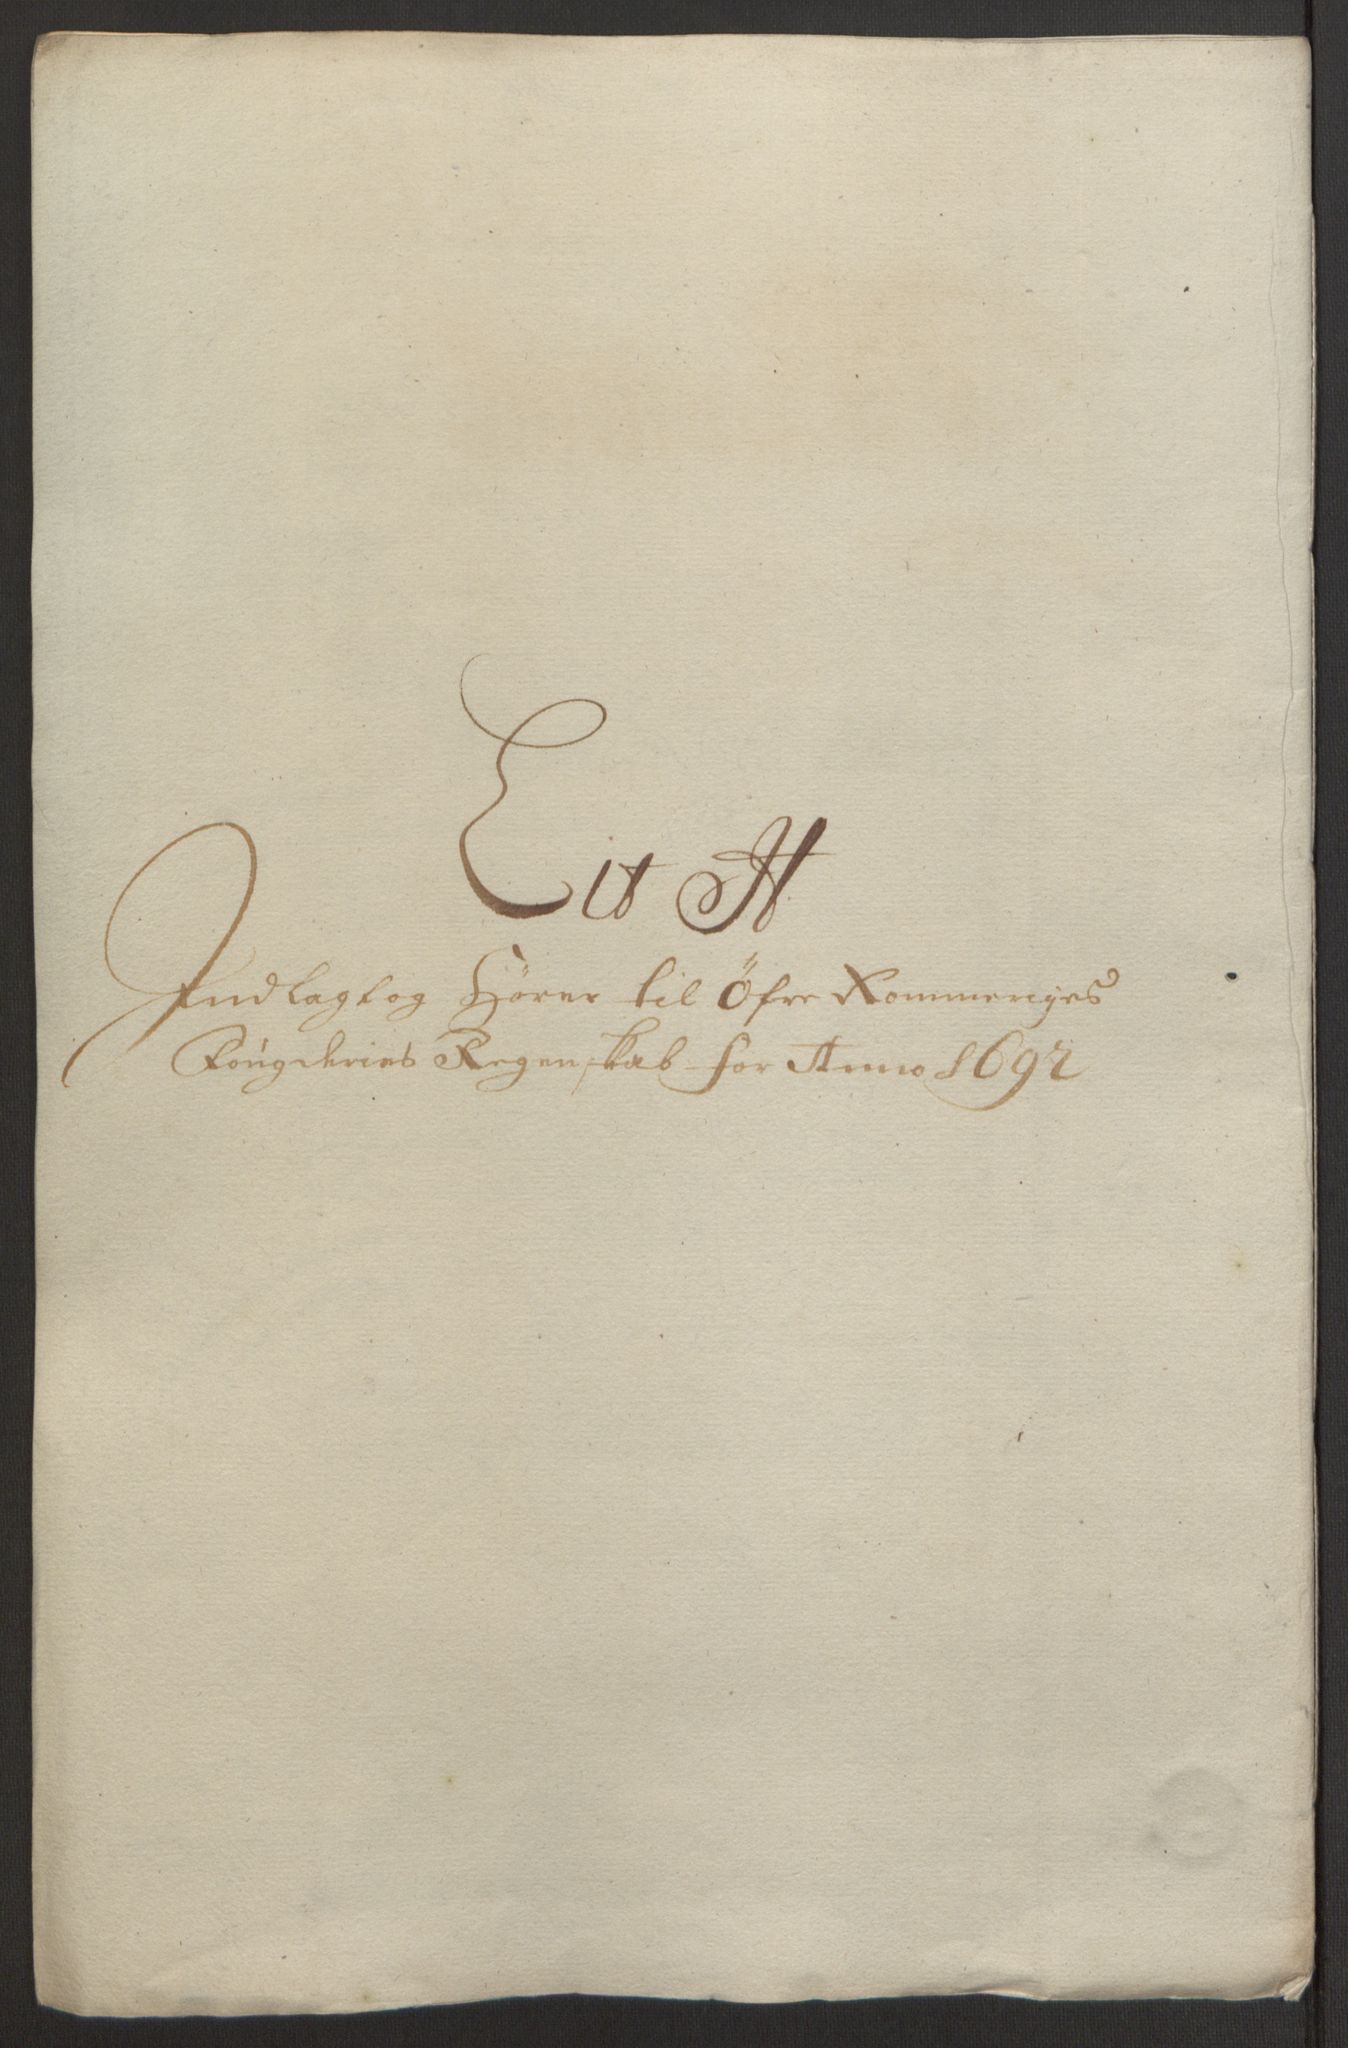 Lit A
Indlagt og Hører til Öfre Rommeriges
Foügderies Regenskab for Anno 1692